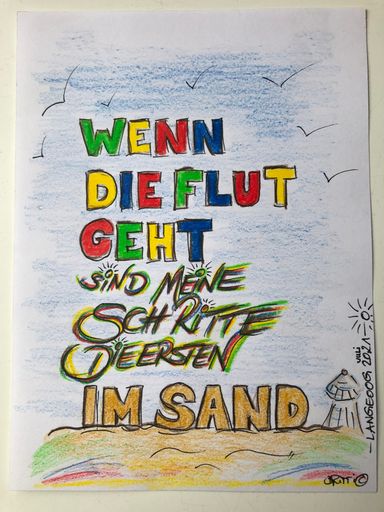 WENN
DIE FLUT
GEHT
SIND MEINE
SCHRITTE
DIE ERSTEN
IM SAND
LANGEOOG 2021